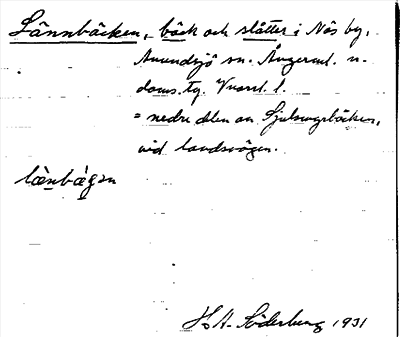 Lännbäcken, bäck och slåtter i Näs by,
Anundsjö sn. Ångerml. n.
doms. tg. Vnorrl. l.
= nedre delen av Sjulsmyrbäcken,
vid landsvägen.
lænbægən
H. A. Söderberg 1931